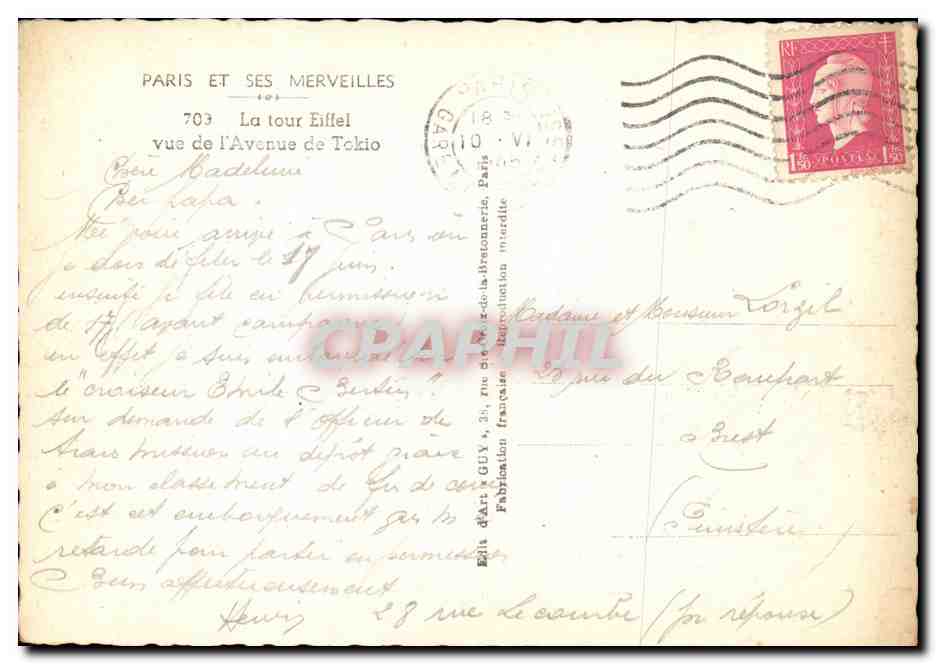 PARIS ET SES MERVEILLES
709 La tour Eiffel
vue de l'Avenue de Tokio
Madeleine
Cher papa.
arrivé à Paris où
je dois défiler le 17 juin.
ensuite je file en permission
de 17 avant campagne
en effet je suis
le "croiseur Emile Bertin"
sur demande de l'officier de
transmission au dépôt
à mon classement de fin de cours
C'est cet embarquement qui m
retarde pour partir en permission
affectueusement
Henri 28 rue Lecourbe (pr réponse)
Edit. d'Art « GUY », 38, rue Ste-Croix-de-la-Bretonnerie, Paris
Fabrication française - Reproduction interdite
PARIS
18
10 VI
GARE
RF
1 Fr. 50 POSTES 1 Fr. 50
Madame et Monsieur Lorgil
rue du Rempart
Brest
(Finistère)
CPAPHIL